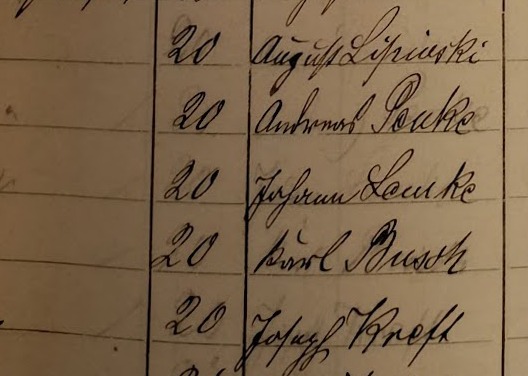 20 August Lipinski
20 Andreas Penke
20 Johann Lemke
20 Karl Busch
20 Joseph Kreft